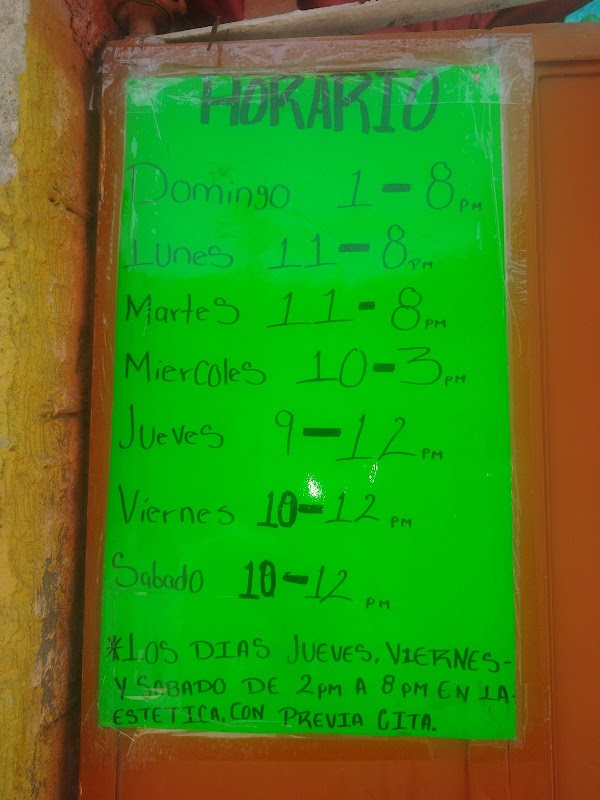 HORARIO
Domingo 1-8 PM
Lunes 11-8 PM
Martes 11-8 PM
Miercoles 10-3 PM
Jueves 9-12 PM
Viernes 10-12 PM
Sabado 10-12 PM
*LOS DIAS JUEVES, VIERNES-
Y SABADO DE 2PM A 8PM EN LA
ESTETICA, CON PREVIA CITA.